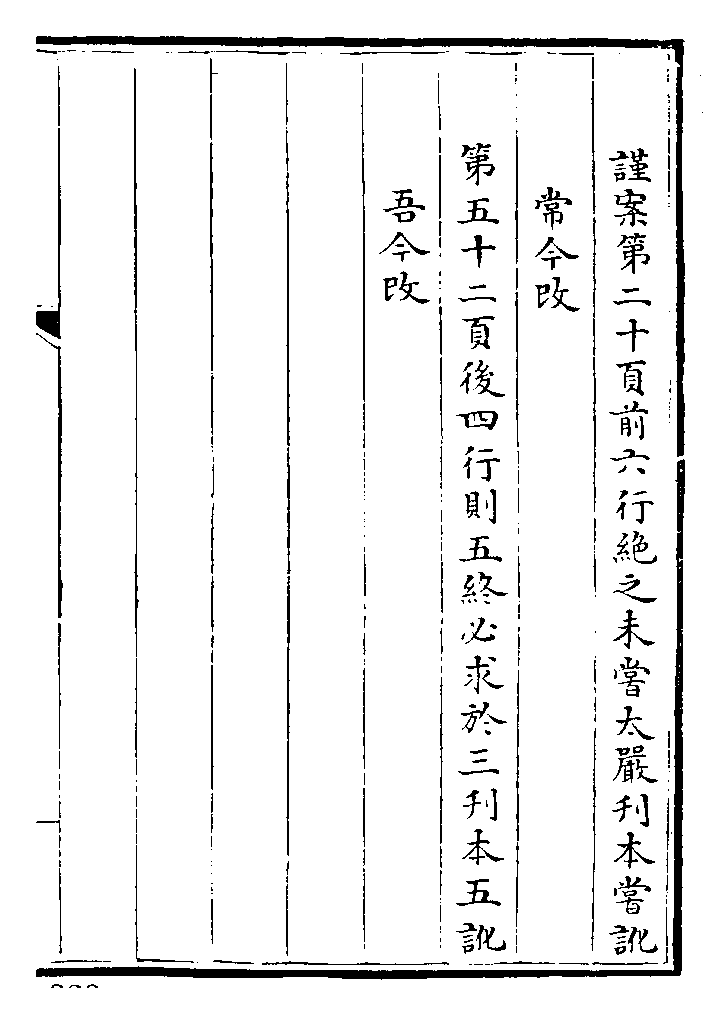 謹案第二十頁前六行絶之未嘗太嚴刊本嘗訛
常今改
第五十二頁後四行則五終必求於三刊本五訛
吾今改